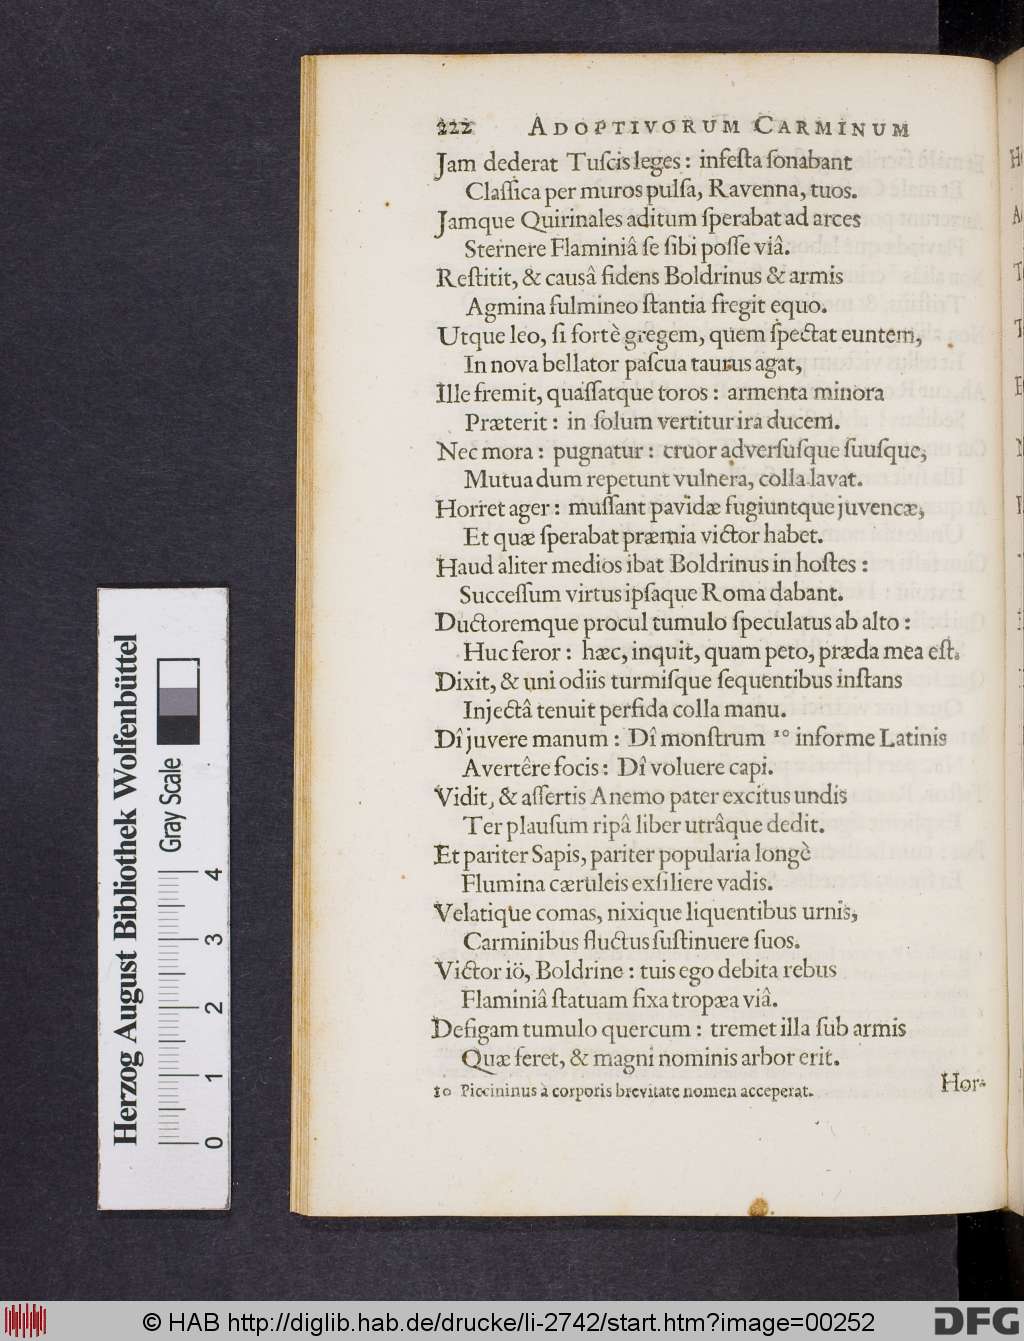 222 ADOPTIVORUM CARMINUM
Jam dederat Tuſcis leges : infeſta ſonabant
Claſſica per muros pulſa, Ravenna, tuos.
Jamque Quirinales aditum ſperabat ad arces
Sternere Flaminiâ ſe ſibi poſſe viâ.
Reſtitit, & causâ fidens Boldrinus & armis
Agmina fulmineo ſtantia fregit equo.
Utque leo, ſi fortè gregem, quem ſpectat euntem,
In nova bellator paſcua taurus agat,
Ille fremit, quaſſatque toros : armenta minora
Præterit : in ſolum vertitur ira ducem.
Nec mora : pugnatur : cruor adverſuſque ſuuſque,
Mutua dum repetunt vulnera, colla lavat.
Horret ager : muſſant pavidæ fugiuntque juvencæ,
Et quæ ſperabat præmia victor habet.
Haud aliter medios ibat Boldrinus in hoſtes :
Succeſſum virtus ipſaque Roma dabant.
Ductoremque procul tumulo ſpeculatus ab alto :
Huc feror : hæc, inquit, quam peto, præda mea eſt.
Dixit, & uni odiis turmiſque ſequentibus inſtans
Injectâ tenuit perfida colla manu.
Dî juvere manum : Dî monſtrum 10 informe Latinis
Avertêre focis : Dî voluere capi.
Vidit, & aſſertis Anemo pater excitus undis
Ter plauſum ripâ liber utrâque dedit.
Et pariter Sapis, pariter popularia longè
Flumina cæruleis exſiliere vadis.
Velatique comas, nixique liquentibus urnis,
Carminibus fluctus ſuſtinuere ſuos.
Victor iö, Boldrine : tuis ego debita rebus
Flaminiâ ſtatuam fixa tropæa viâ.
Defigam tumulo quercum : tremet illa ſub armis
Quæ feret, & magni nominis arbor erit.
10 Piccininus à corporis brevitate nomen acceperat.
Hor-
Herzog August Bibliothek Wolfenbüttel
Gray Scale
0 1 2 3 4
© HAB http://diglib.hab.de/drucke/li-2742/start.htm?image=00252
DFG